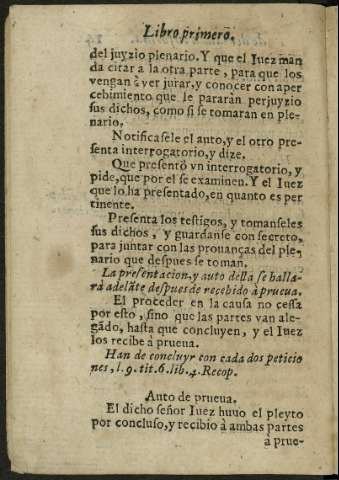 Libro primero.
del juyzio plenario. Y que el Iuez man
da citar a la otra parte, para que los
vengan à ver jurar, y conocer con aper
cebimiento que le pararàn perjuyzio
sus dichos, como si se tomaran en ple-
nario.
Notificasele el auto, y el otro pre-
senta interrogatorio, y dize.
Que presentò vn interrogatorio, y
pide, que por el se examinen. Y el Iuez
que lo ha presentado, en quanto es per
tinente.
Presenta los testigos, y tomanseles
sus dichos, y guardanse con secreto,
para juntar con las prouanças del ple-
nario que despues se toman.
La presentacion, y auto della se halla-
rà adelãte despues de recebido à prueua.
El proceder en la causa no cessa
por esto, sino que las partes van ale-
gãdo, hasta que concluyen, y el Iuez
los recibe à prueua.
Han de concluyr con cada dos peticio
nes, l. 9. tit. 6. lib. 4. Recop.
Auto de prueua.
El dicho señor Iuez huuo el pleyto
por concluso, y recibio à ambas partes
à prue-